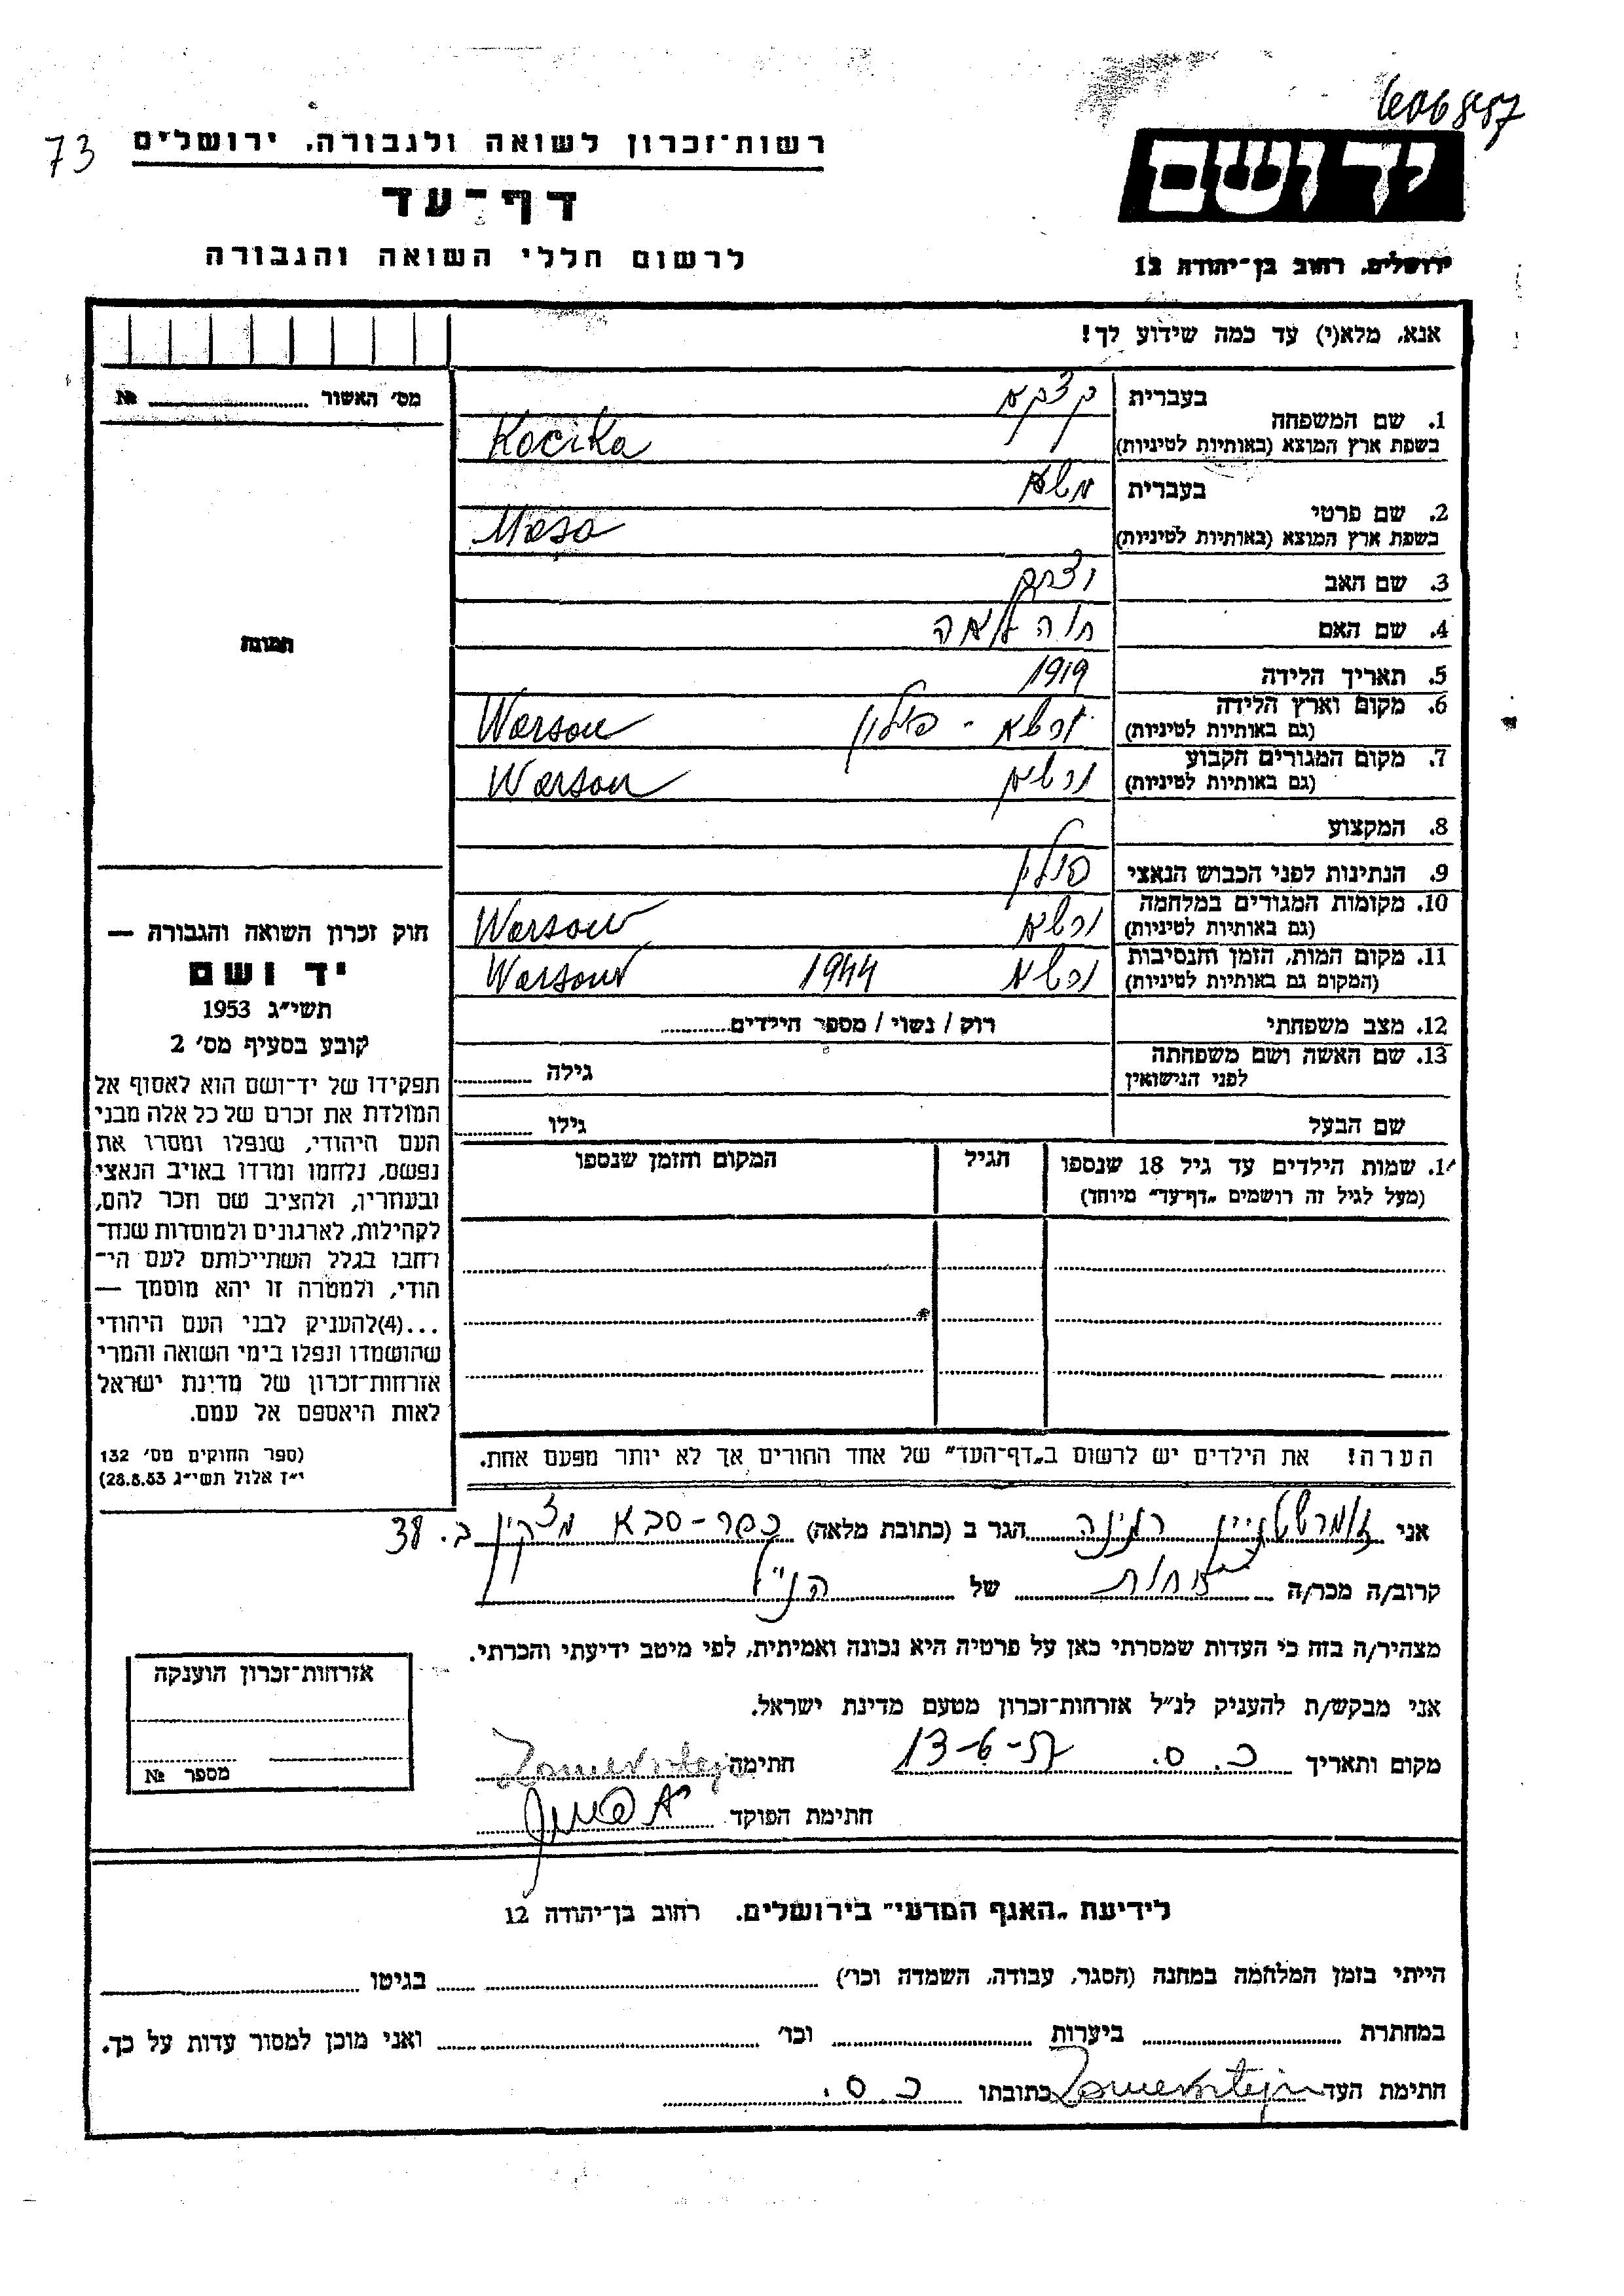 6068457
73
רשות־זכרון לשואה ולגבורה, ירושלים
יד ושם
דף־עד
לרשום חללי השואה והגבורה
ירושלים, רחוב בן־יהודה 12
אנא, מלא(י) עד כמה שידוע לך!
מס׳ האשור № 
1. שם המשפחה
בעברית
קצקא
בשפת ארץ המוצא (באותיות לטיניות)
Kocika
2. שם פרטי
בעברית
משא
בשפת ארץ המוצא (באותיות לטיניות)
Masa
3. שם האב
4. שם האם חוה לאה
5. תאריך הלידה 1919
6. מקום וארץ הלידה
(גם באותיות לטיניות)
ורשא - פולין Warsou
7. מקום המגורים הקבוע
(גם באותיות לטיניות)
ורשא Warsou
8. המקצוע
9. הנתינות לפני הכבוש הנאצי פולין
10. מקומות המגורים במלחמה
(גם באותיות לטיניות)
ורשא Warsow
11. מקום המות, הזמן והנסיבות
(המקום גם באותיות לטיניות)
ורשא 1944 Warsow
12. מצב משפחתי רוק / נשוי / מספר הילדים
13. שם האשה ושם משפחתה
לפני הנישואין
גילה
שם הבעל גילו
1. שמות הילדים עד גיל 18 שנספו
(מעל לגיל זה רושמים „דף־עד״ מיוחד)
הגיל
המקום והזמן שנספו
הערה! את הילדים יש לרשום ב„דף־העד״ של אחד ההורים אך לא יותר מפעם אחת.
תמונה
חוק זכרון השואה והגבורה —
יד ושם
תשי״ג 1953
קובע בסעיף מס׳ 2
תפקידו של יד־ושם הוא לאסוף אל
המולדת את זכרם של כל אלה מבני
העם היהודי, שנפלו ומסרו את
נפשם, נלחמו ומרדו באויב הנאצי
ובעוזריו, ולהציב שם וזכר להם,
לקהילות, לארגונים ולמוסדות שנח־
רבו בגלל השתייכותם לעם הי־
הודי, ולמטרה זו יהא מוסמך —
...(4)להעניק לבני העם היהודי
שהושמדו ונפלו בימי השואה והמרי
אזרחות־זכרון של מדינת ישראל
לאות היאספם אל עמם.
(ספר החוקים מס׳ 132
י״ז אלול תשי״ג 28.8.53)
אני זומרשטיין רבינה הגר ב (כתובת מלאה) כפר-סבא ב. 38
קרוב/ה מכר/ה אחות של הנ״ל
מצהיר/ה בזה כי העדות שמסרתי כאן על פרטיה היא נכונה ואמיתית, לפי מיטב ידיעתי והכרתי.
אני מבקש/ת להעניק לנ״ל אזרחות־זכרון מטעם מדינת ישראל.
מקום ותאריך כ. ס. 13-6-57 חתימה Zomersztejn
חתימת הפוקד
אזרחות־זכרון הוענקה
מספר №
לידיעת „האגף המדעי״ בירושלים. רחוב בן־יהודה 12
הייתי בזמן המלחמה במחנה (הסגר, עבודה, השמדה וכו׳) בגיטו
במחתרת ביערות וכו׳ ואני מוכן למסור עדות על כך.
חתימת העד Zomersztejn כתובתו כ. ס.